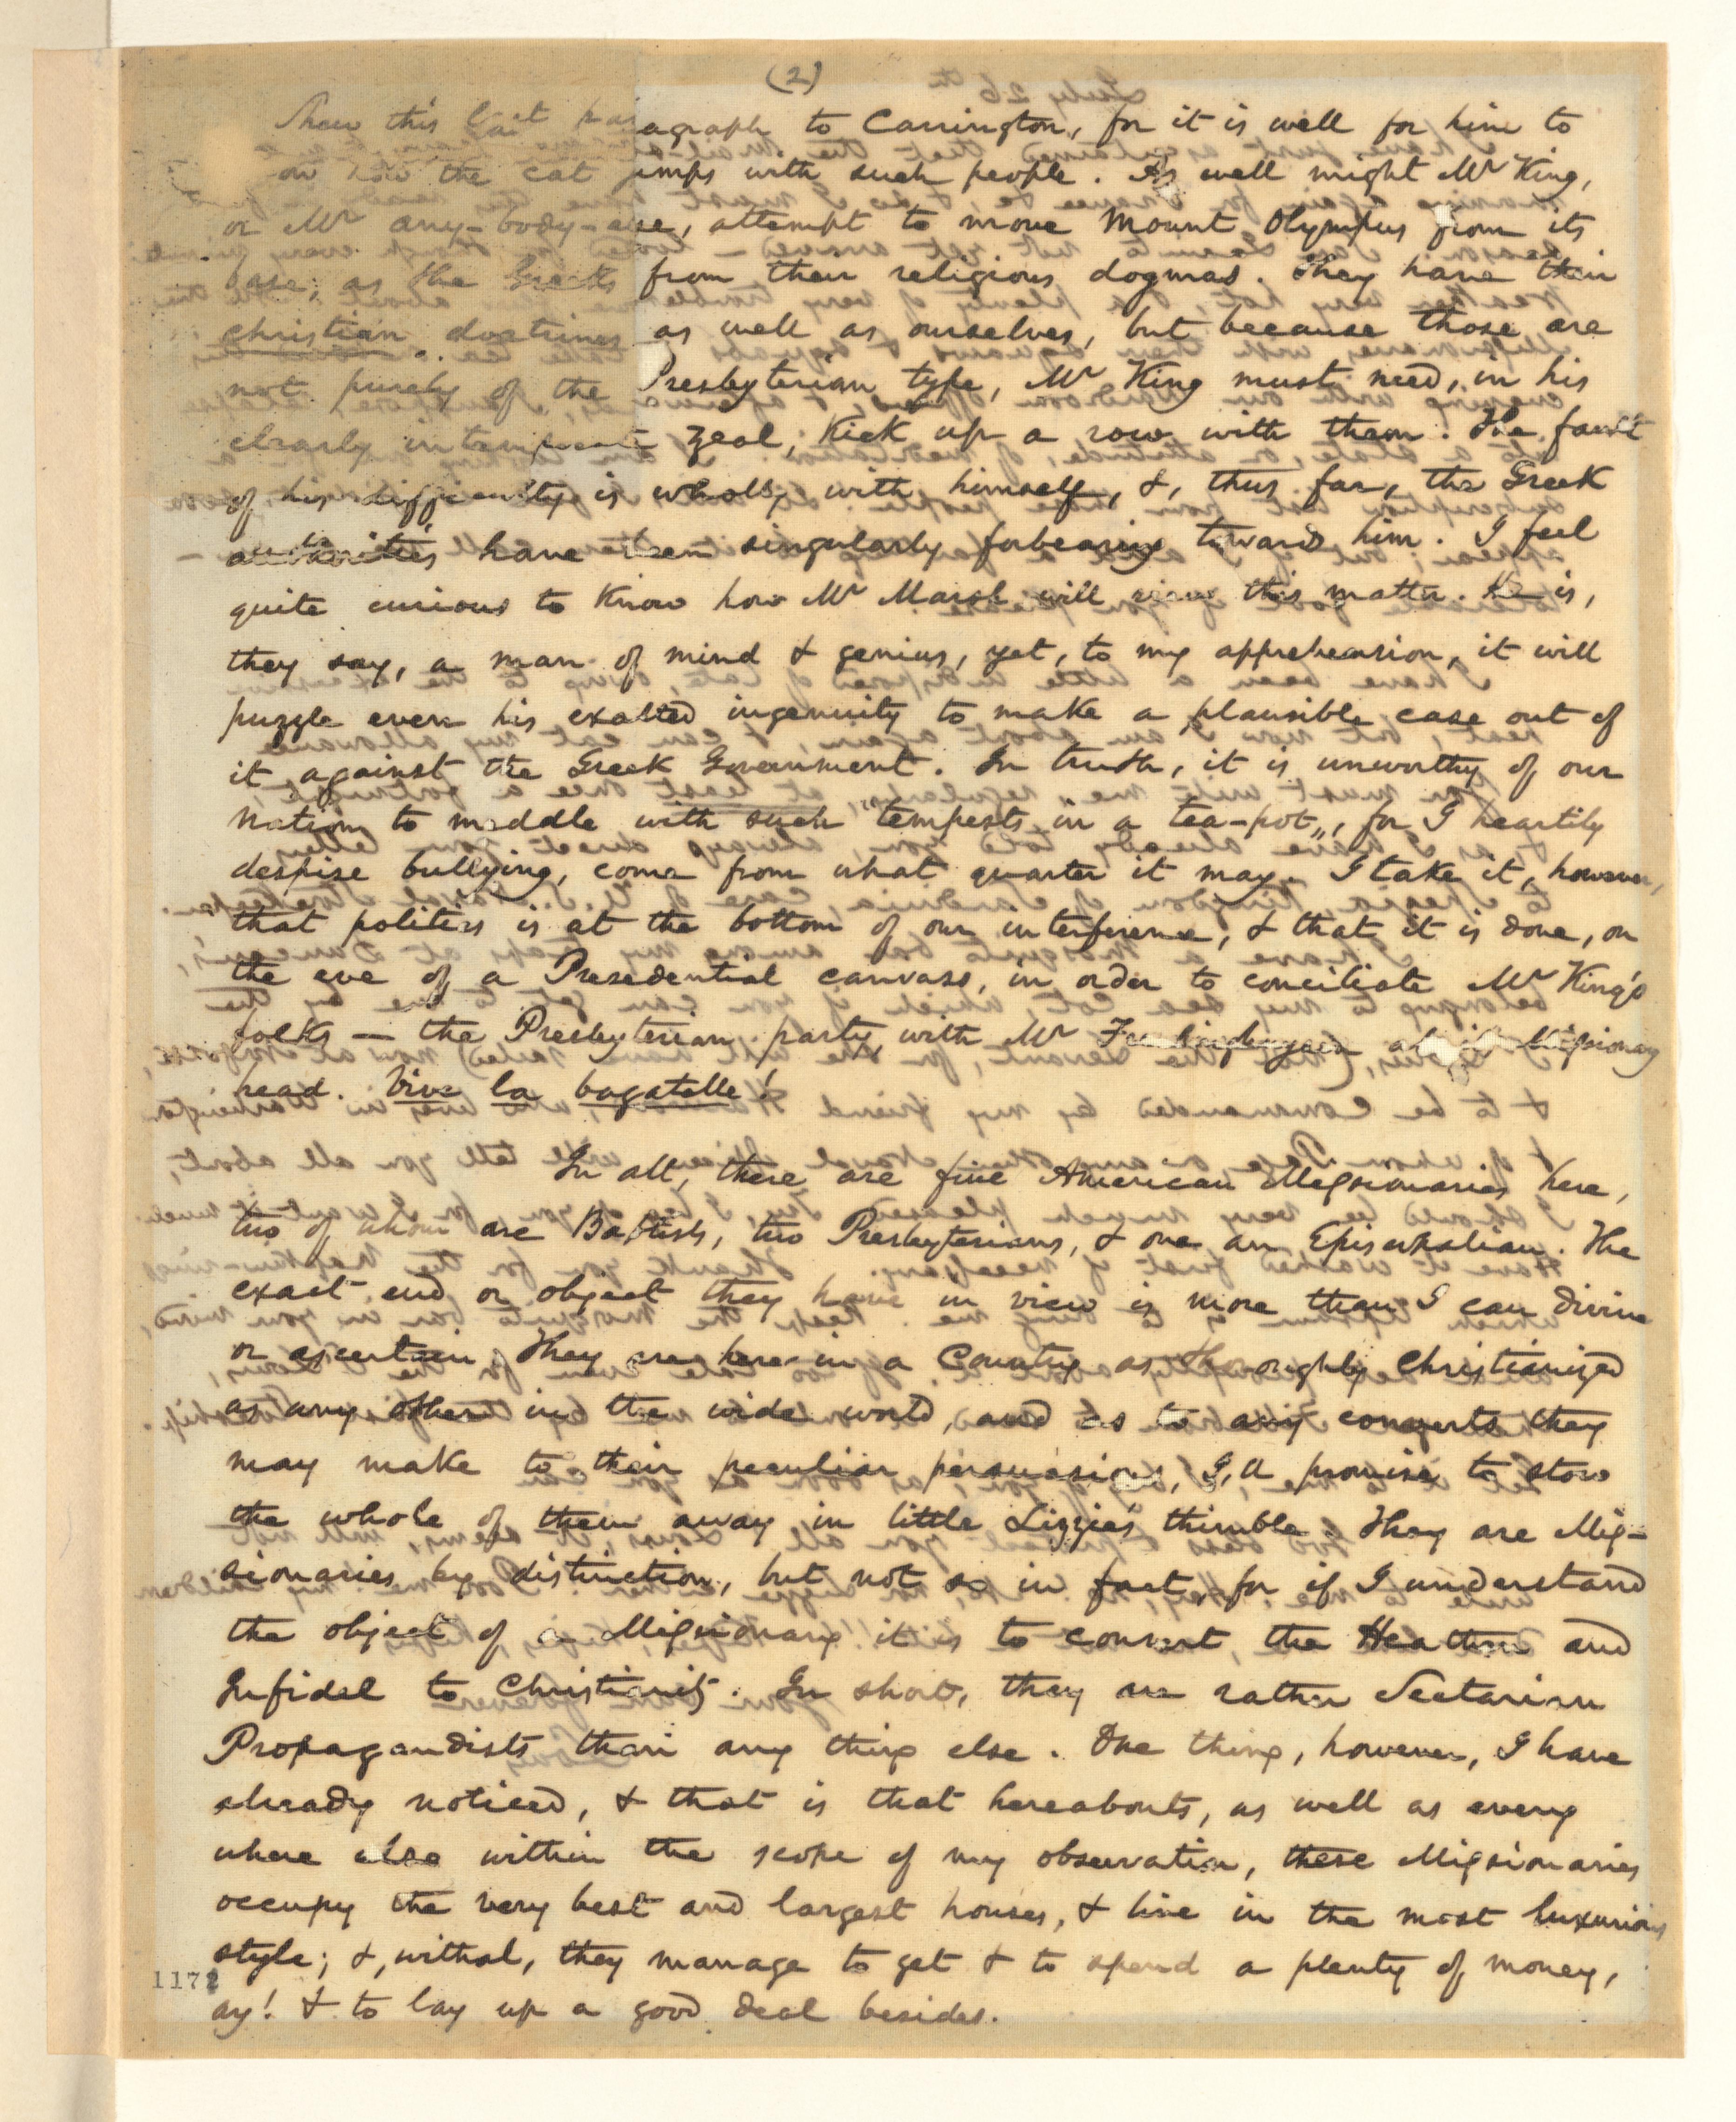 (2)
Show this last paragraph to Carrington, for it is well for him to
how the cat jumps with such people. As well might Mr King,
or Mr any-body-else, attempt to move Mount Olympus from its
base, as the Greeks from their religious dogmas. They have their
christian doctrines as well as ourselves, but because those are
not purely of the Presbyterian type, Mr King must need, in his
clearly intemperate zeal, kick up a row with them. The fault
of his difficulty is wholly with himself, &, thus far, the Greek
authorities have been singularly forbearing toward him. I feel
quite curious to know how Mr Marsh will view this matter. He is,
they say, a man of mind & genius, yet, to my apprehension, it will
puzzle even his exalted ingenuity to make a plausible case out of
it against the Greek Government. In truth, it is unworthy of our
Nation to meddle with such "tempests in a tea-pot", for I heartily
despise bullying, come from what quarter it may. I take it, however,
that politics is at the bottom of our interference, & that it is done, on
the eve of a Presedential canvass, in order to conciliate Mr King's
folks — the Presbyterian party, with Mr Frelinghuysen at its Missionary
head. Vive la bagatelle!
In all, there are five American Missionaries here,
two of whom are Baptists, two Presbyterians, & one an Episcopalian. The
exact end or object they have in view is more than I can divine
or ascertain. They are here in a Country as thoroughly Christianized
as any other in the wide world, and as to any converts they
may make to their peculiar persuasions, I'll promise to stow
the whole of them away in little Lizzie's thimble. They are Mis-
sionaries by distinction, but not so in fact, for if I understand
the object of a Missionary it is to convert the Heathen and
Infidel to Christianity. In short, they are rather Sectarian
Propagandists than any thing else. One thing, however, I have
already noticed, & that is that hereabouts, as well as every
where else within the scope of my observation, these Missionaries
occupy the very best and largest houses, & live in the most luxurious
style; &, withal, they manage to get & to spend a plenty of money,
ay! & to lay up a good deal besides.
1172